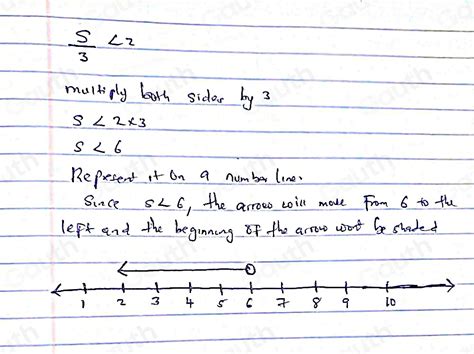 S/3 < 2
multiply both sides by 3
S < 2×3
S < 6
Represent it on a number line.
Since S < 6, the arrow will move from 6 to the
left and the beginning of the arrow wont be shaded
1 2 3 4 5 6 7 8 9 10